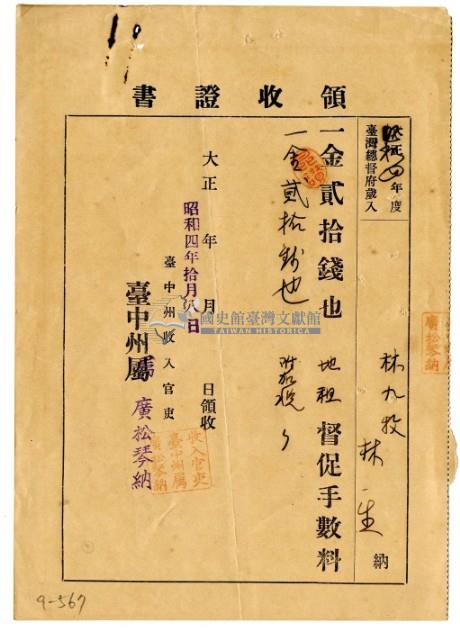 領收證書
昭和四年度
臺灣總督府歲入
林九牧 林一生 納
一金貳拾錢也 地租 督促手數料
一金貳拾錢也 附加税 〃
大正 年 月 日領收
昭和四年拾月八日
臺中州收入官吏
臺中州屬 廣松琴納
收入官吏
臺中州屬
廣松琴納
廣松琴納
國史館臺灣文獻館
TAIWAN HISTORICA
9-567